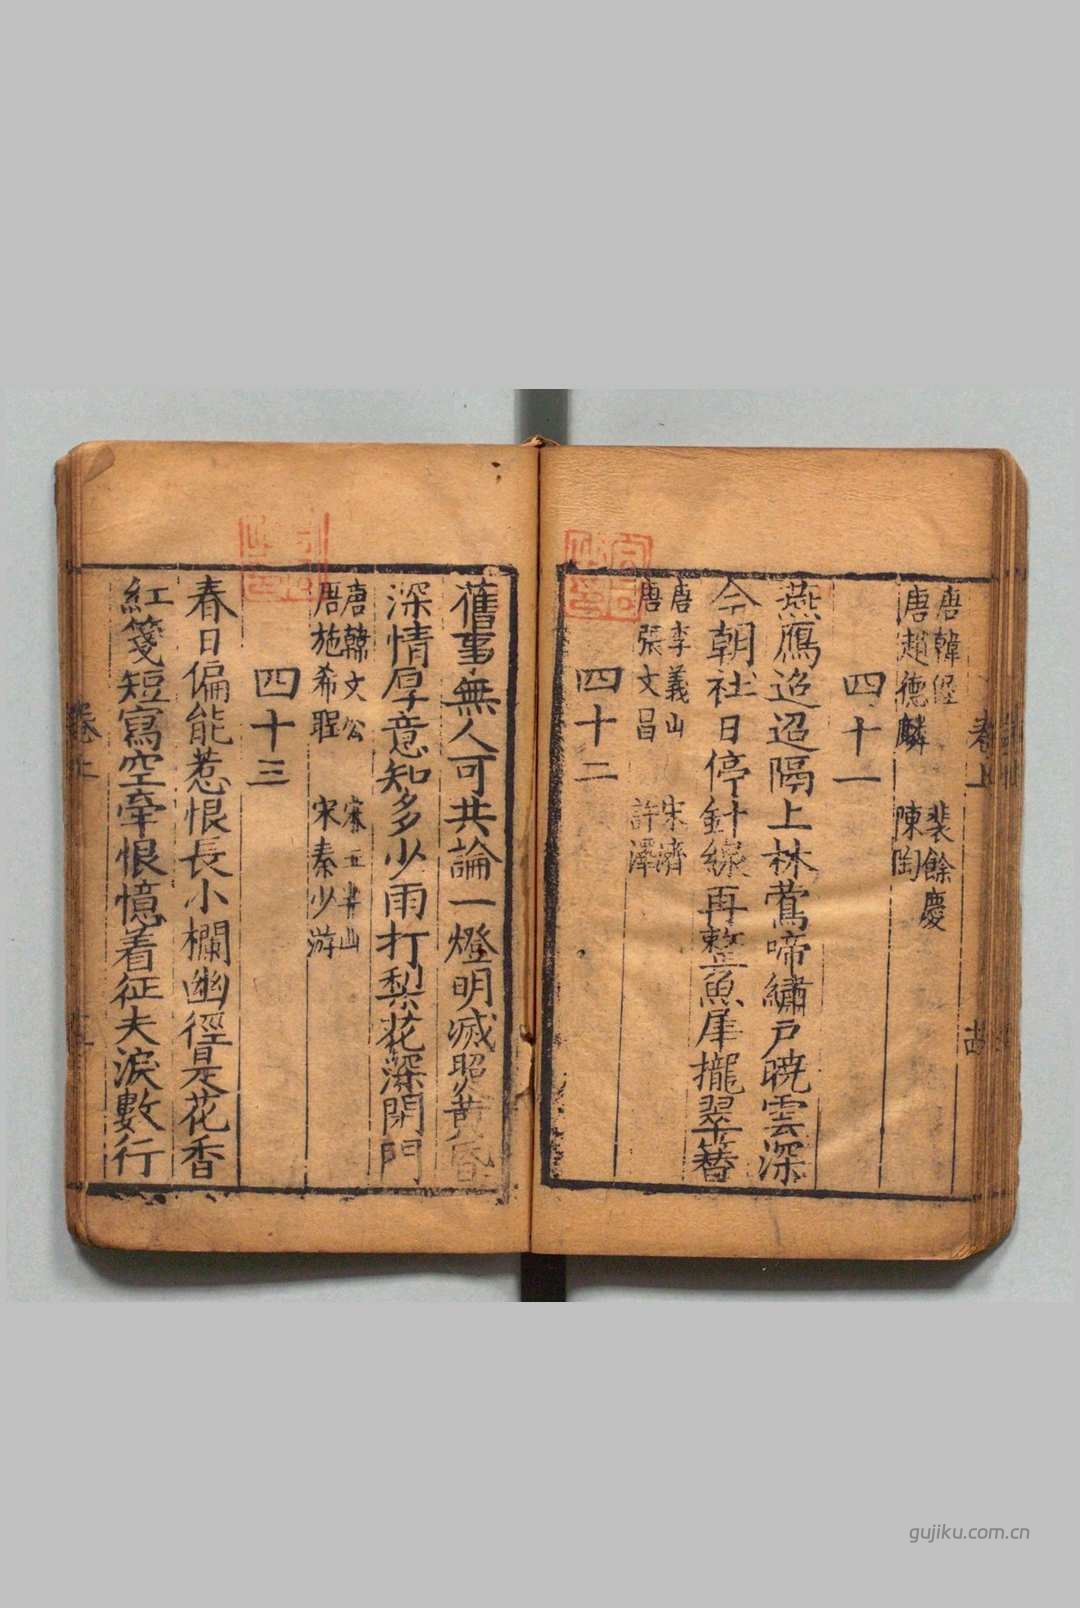 唐韓偓　裴餘慶
唐趙德麟　陳陶
四十一
燕鴈迢迢隔上林鶯啼繡戶曉雲深
今朝社日停針線再整魚犀攏翠簪
唐李義山　宋濟
唐張文昌　許渾
四十二
舊事無人可共論一燈明滅照黃昏
深情厚意知多少雨打梨花深閉門
唐韓文公
唐施希聖　宋秦少游
四十三
春日偏能惹恨長小欄幽徑是花香
紅箋短寫空牽恨憶着征夫淚數行
卷上
gujiku.com.cn